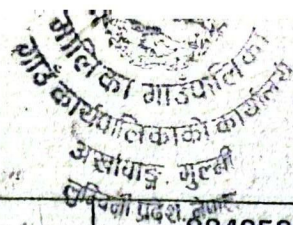 मालिका गाउँपालिका
गाउँ कार्यपालिकाको कार्यालय
अर्खावाङ, गुल्मी
लुम्बिनी प्रदेश, नेपाल